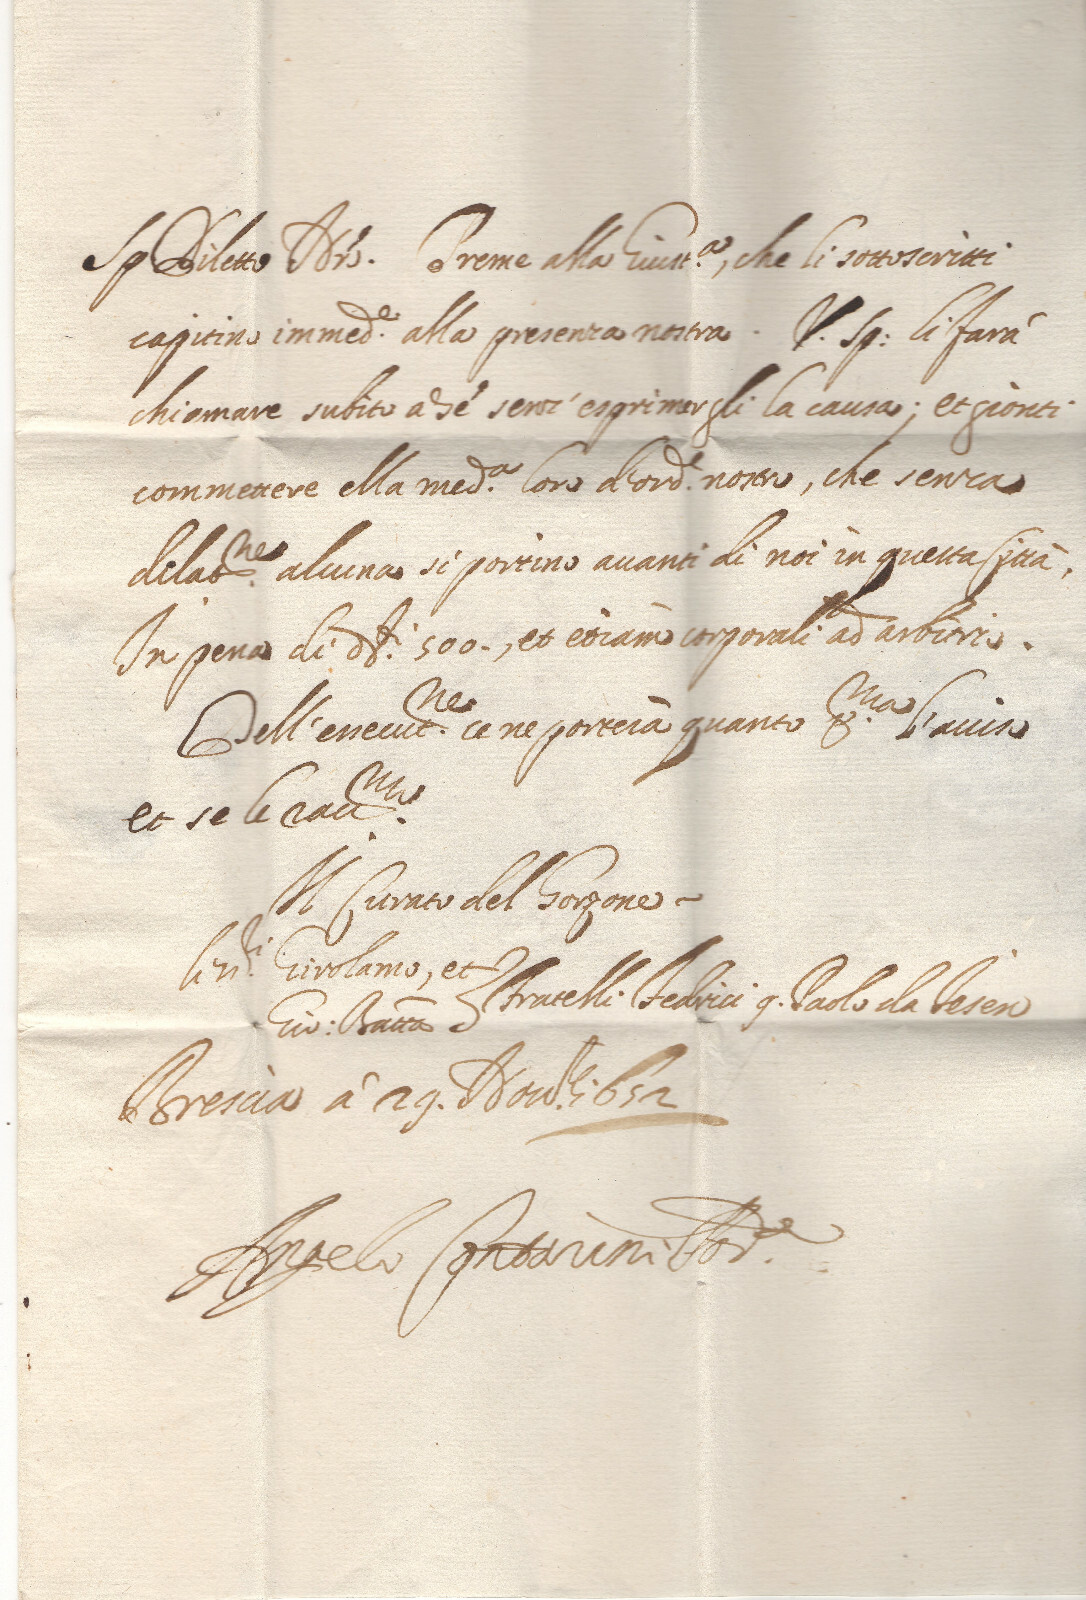 Sp Diletto Nr̃o. Preme alla Giust.a, che li sottoscritti
capitino immed.e alla presenza nostra. V. Sp: li farà
chiamare subito a sé senz' esprimergli la causa; et gionti
commettere ella med.a loro d'ord.e nostro, che senza
dilat.ne alcuna si portino avanti di noi in questa Città,
In pena di d.ti 500., et etiam corporali ad arbitrio.
Dell'essecut.ne ce ne porterà quanto p.ma l'aviso
et se le racc.mo.
Il Curato del Gorzone
li n.di Girolamo, et
Gio: Batta Fratelli Federici q. Paolo da Esen
Brescia à 29. Nov.e 1652
Angelo Contarini Pod.e